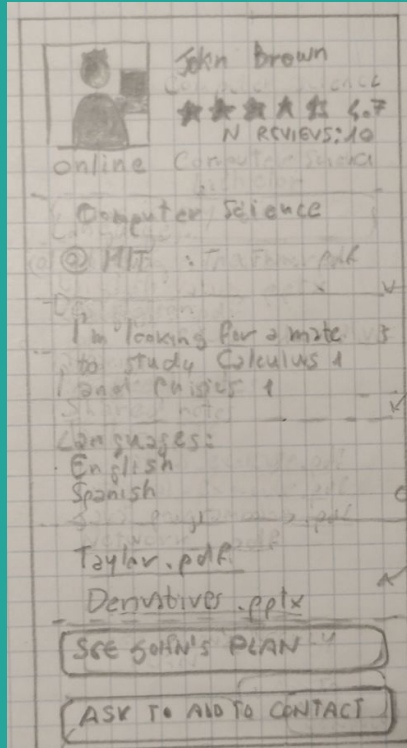 John Brown
4.7
N REVIEWS: 10
online
Computer Science
@ MIT
I'm looking for a mate
to study Calculus 1
and Phisics 1
Languages:
English
Spanish
Taylor.pdf
Derivatives.pptx
SEE JOHN'S PLAN
ASK TO ADD TO CONTACT